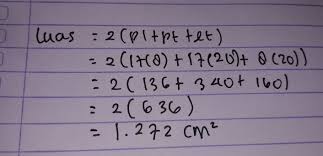 Luas = 2(pl+pt+lt)
= 2(17(8)+17(20)+8(20))
= 2(136+340+160)
= 2(636)
= 1.272 cm²